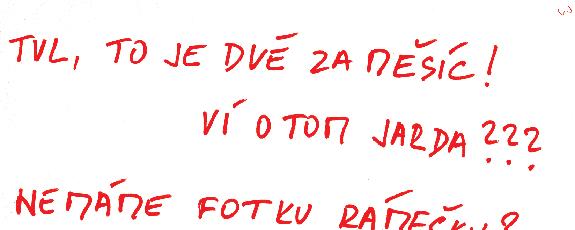 TVL, TO JE DVĚ ZA MĚSÍC!
VÍ O TOM JARDA???
NEMÁME FOTKU RÁMEČKU?